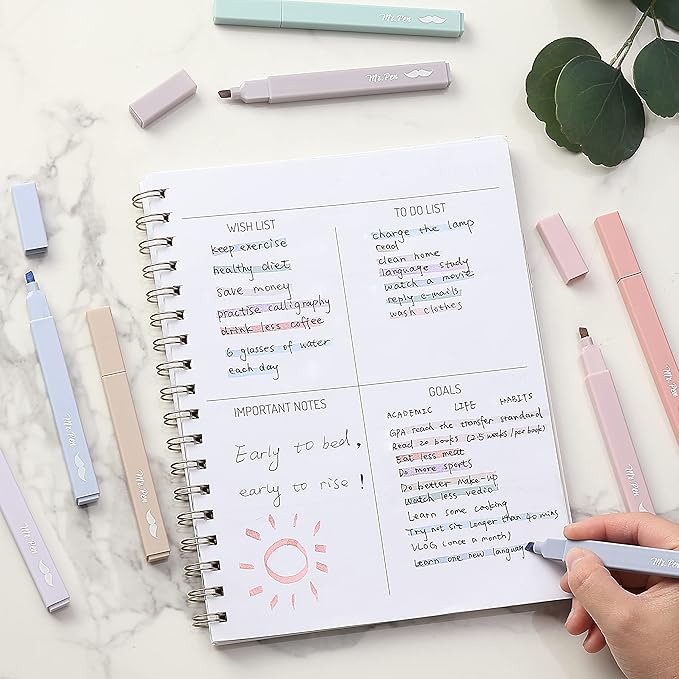 Mr. Pen
Mr. Pen
WISH LIST
keep exercise
healthy diet
save money
practise calligraphy
drink less coffee
6 glasses of water
each day
TO DO LIST
charge the lamp
read
clean home
language study
watch a movie
reply e-mails
wash clothes
IMPORTANT NOTES
Early to bed,
early to rise!
GOALS
ACADEMIC LIFE HABITS
GPA reach the transfer standard
Read 20 books (2.5 weeks/per book)
Eat less meat
Do more sports
Do better make-up
Watch less vedio
Learn some cooking
Try not sit longer than 40 mins
VLOG (once a month)
Learn one new language
Mr. Pen
Mr. Pen
Mr. Pen
Mr. Pen
Mr. Pen
Mr. Pen